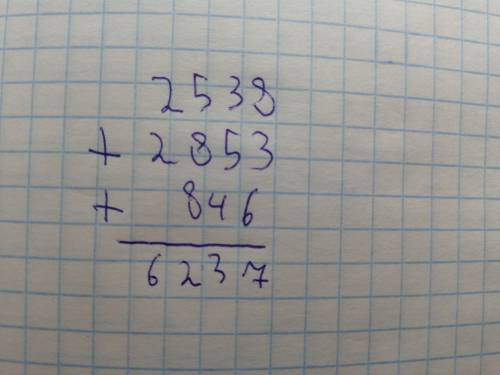 2538
+ 2853
+ 846
6237